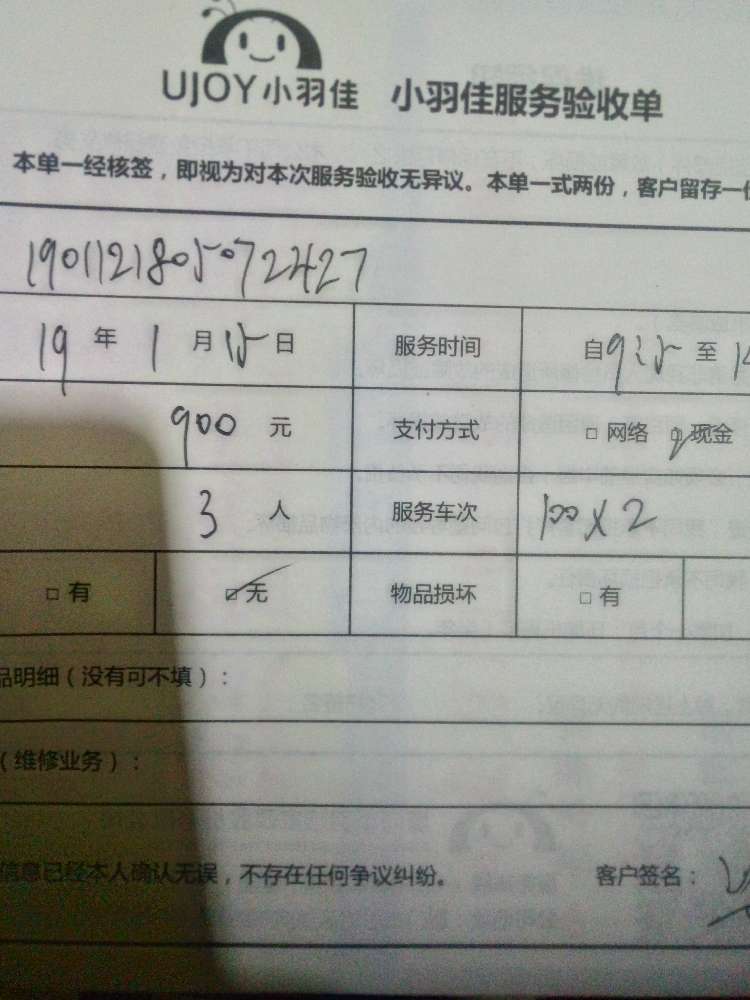 UJOY小羽佳 小羽佳服务验收单
本单一经核签，即视为对本次服务验收无异议。本单一式两份，客户留存一份
19 年 1 月 15 日 服务时间 自 9:15 至 1
900 元 支付方式 □ 网络 ☑ 现金
3 人 服务车次 100×2
□ 有 ☑ 无 物品损坏 □ 有
品明细（没有可不填）：
（维修业务）：
信息已经本人确认无误，不存在任何争议纠纷。 客户签名：